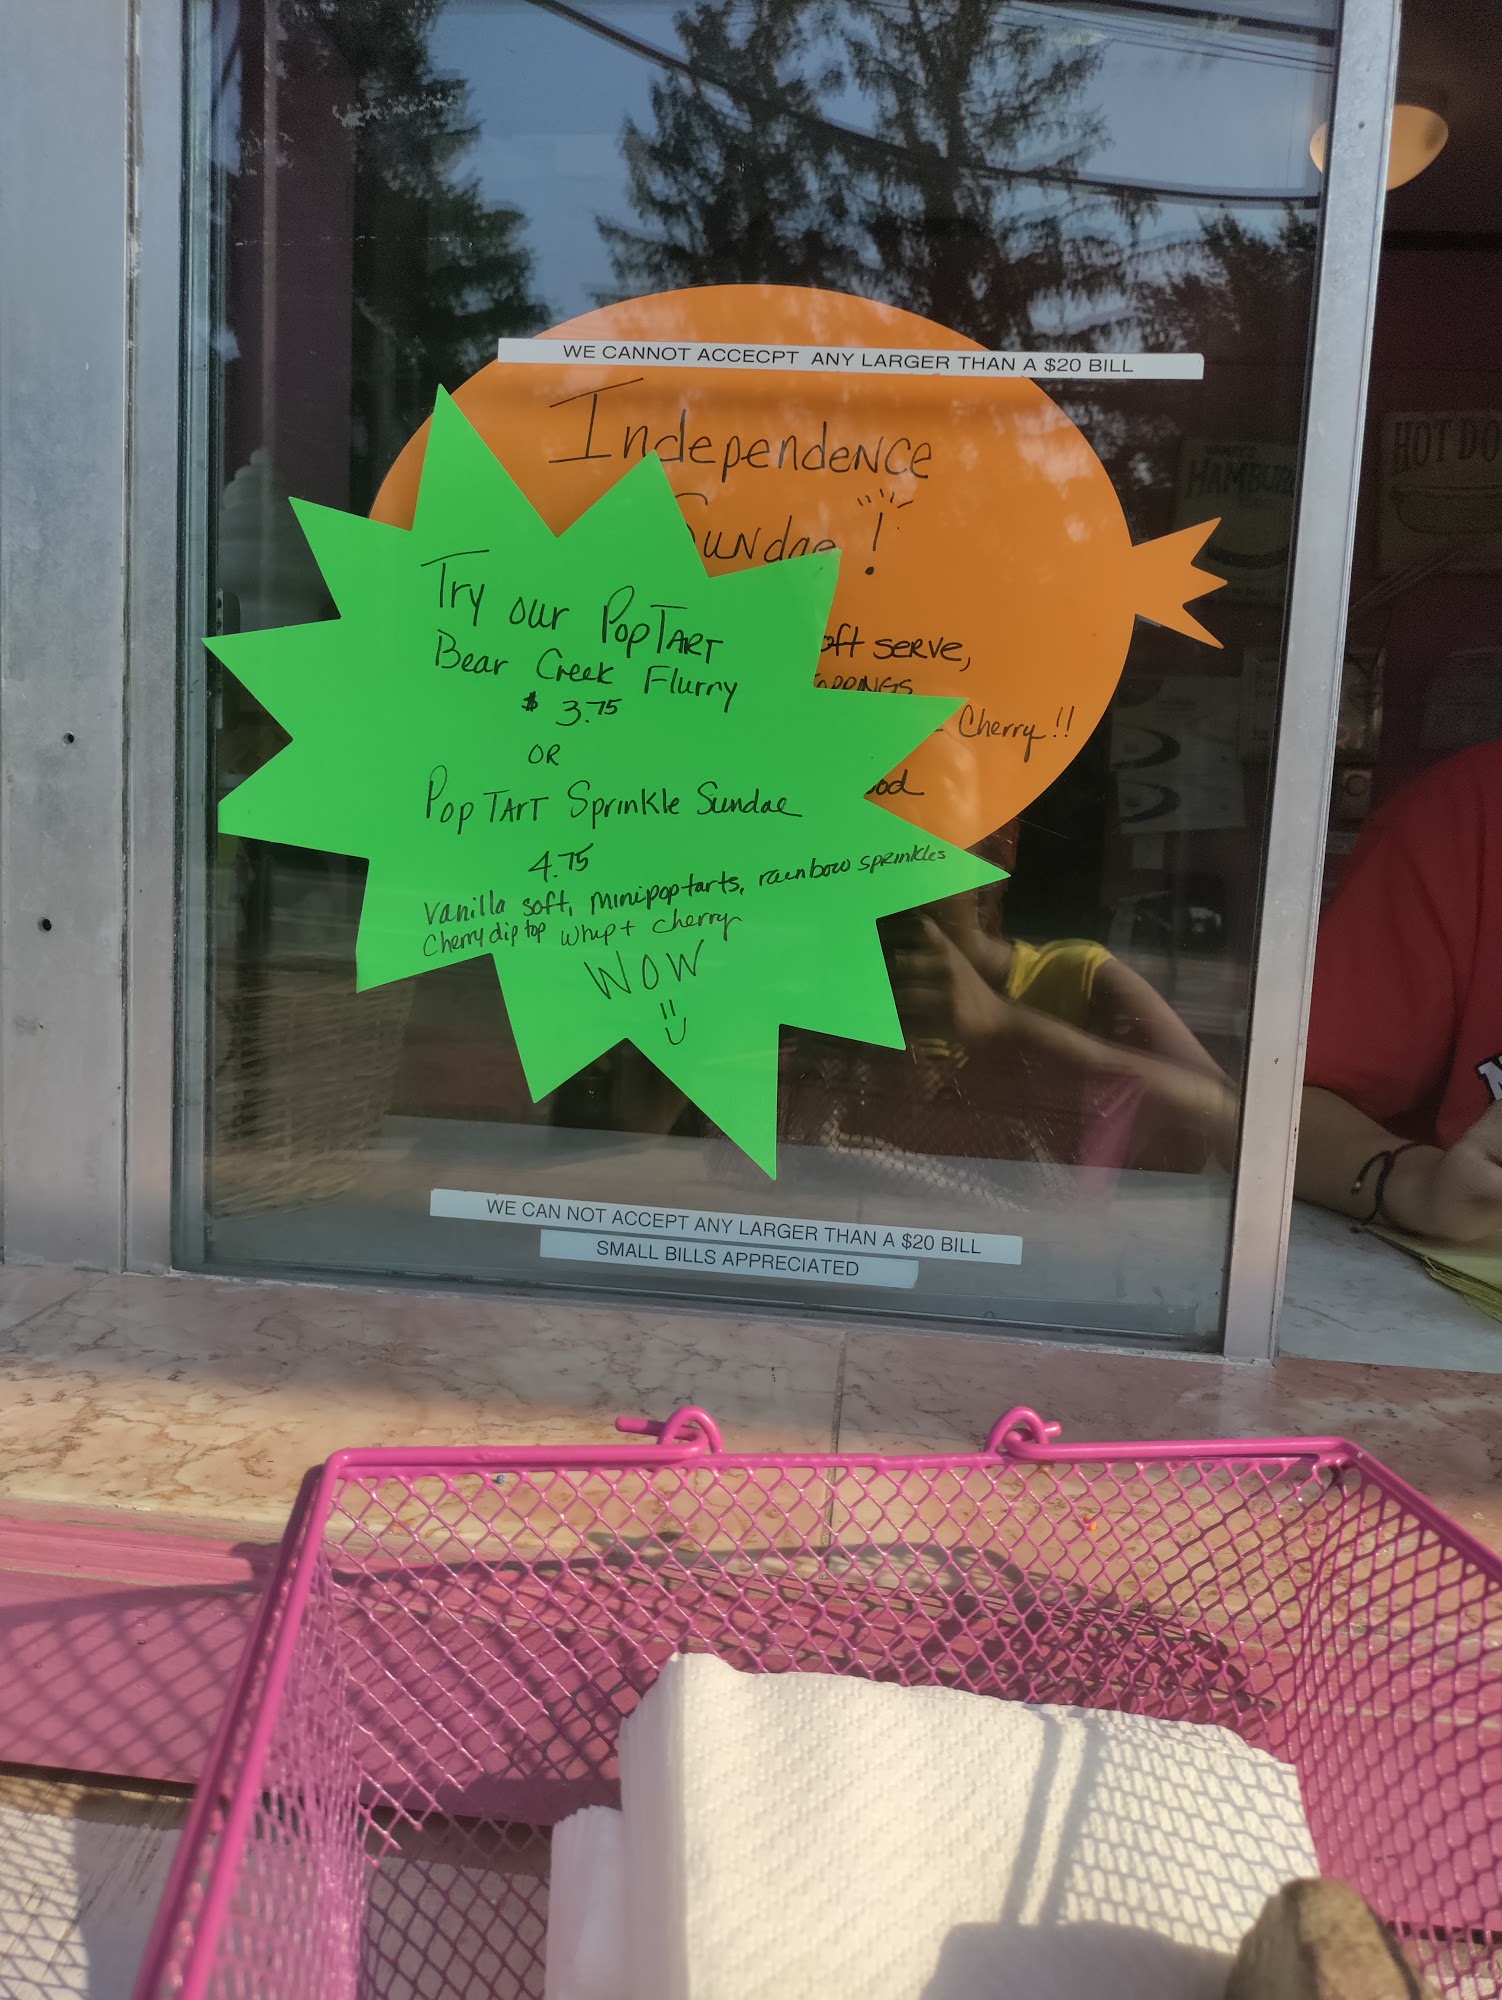 WE CANNOT ACCECPT ANY LARGER THAN A $20 BILL
Independence
Sundae!
soft serve,
toppings
Cherry!!
Try our PopTart
Bear Creek Flurry
$3.75
OR
Pop Tart Sprinkle Sundae
4.75
Vanilla soft, minipoptarts, rainbow sprinkles
Cherry dip top whip + cherry
WOW
WE CAN NOT ACCEPT ANY LARGER THAN A $20 BILL
SMALL BILLS APPRECIATED
HAMBUR
HOT DO